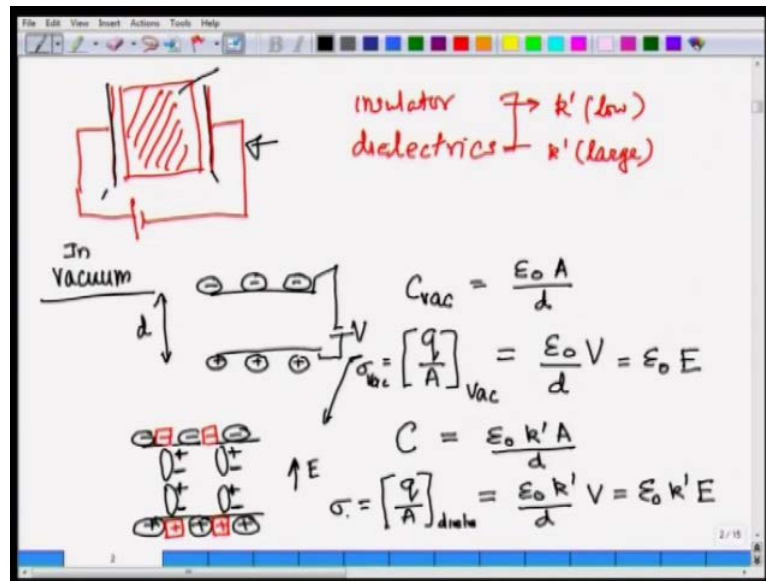 File Edit View Insert Actions Tools Help
B I
insulator → k' (low)
dielectrics k' (large)
In
Vacuum
d
V
C_vac = ε₀ A / d
σ_vac = [q/A]_vac = ε₀/d V = ε₀ E
E
C = ε₀ k' A / d
σ = [q/A]_diele = ε₀ k'/d V = ε₀ k' E
2 / 15
2